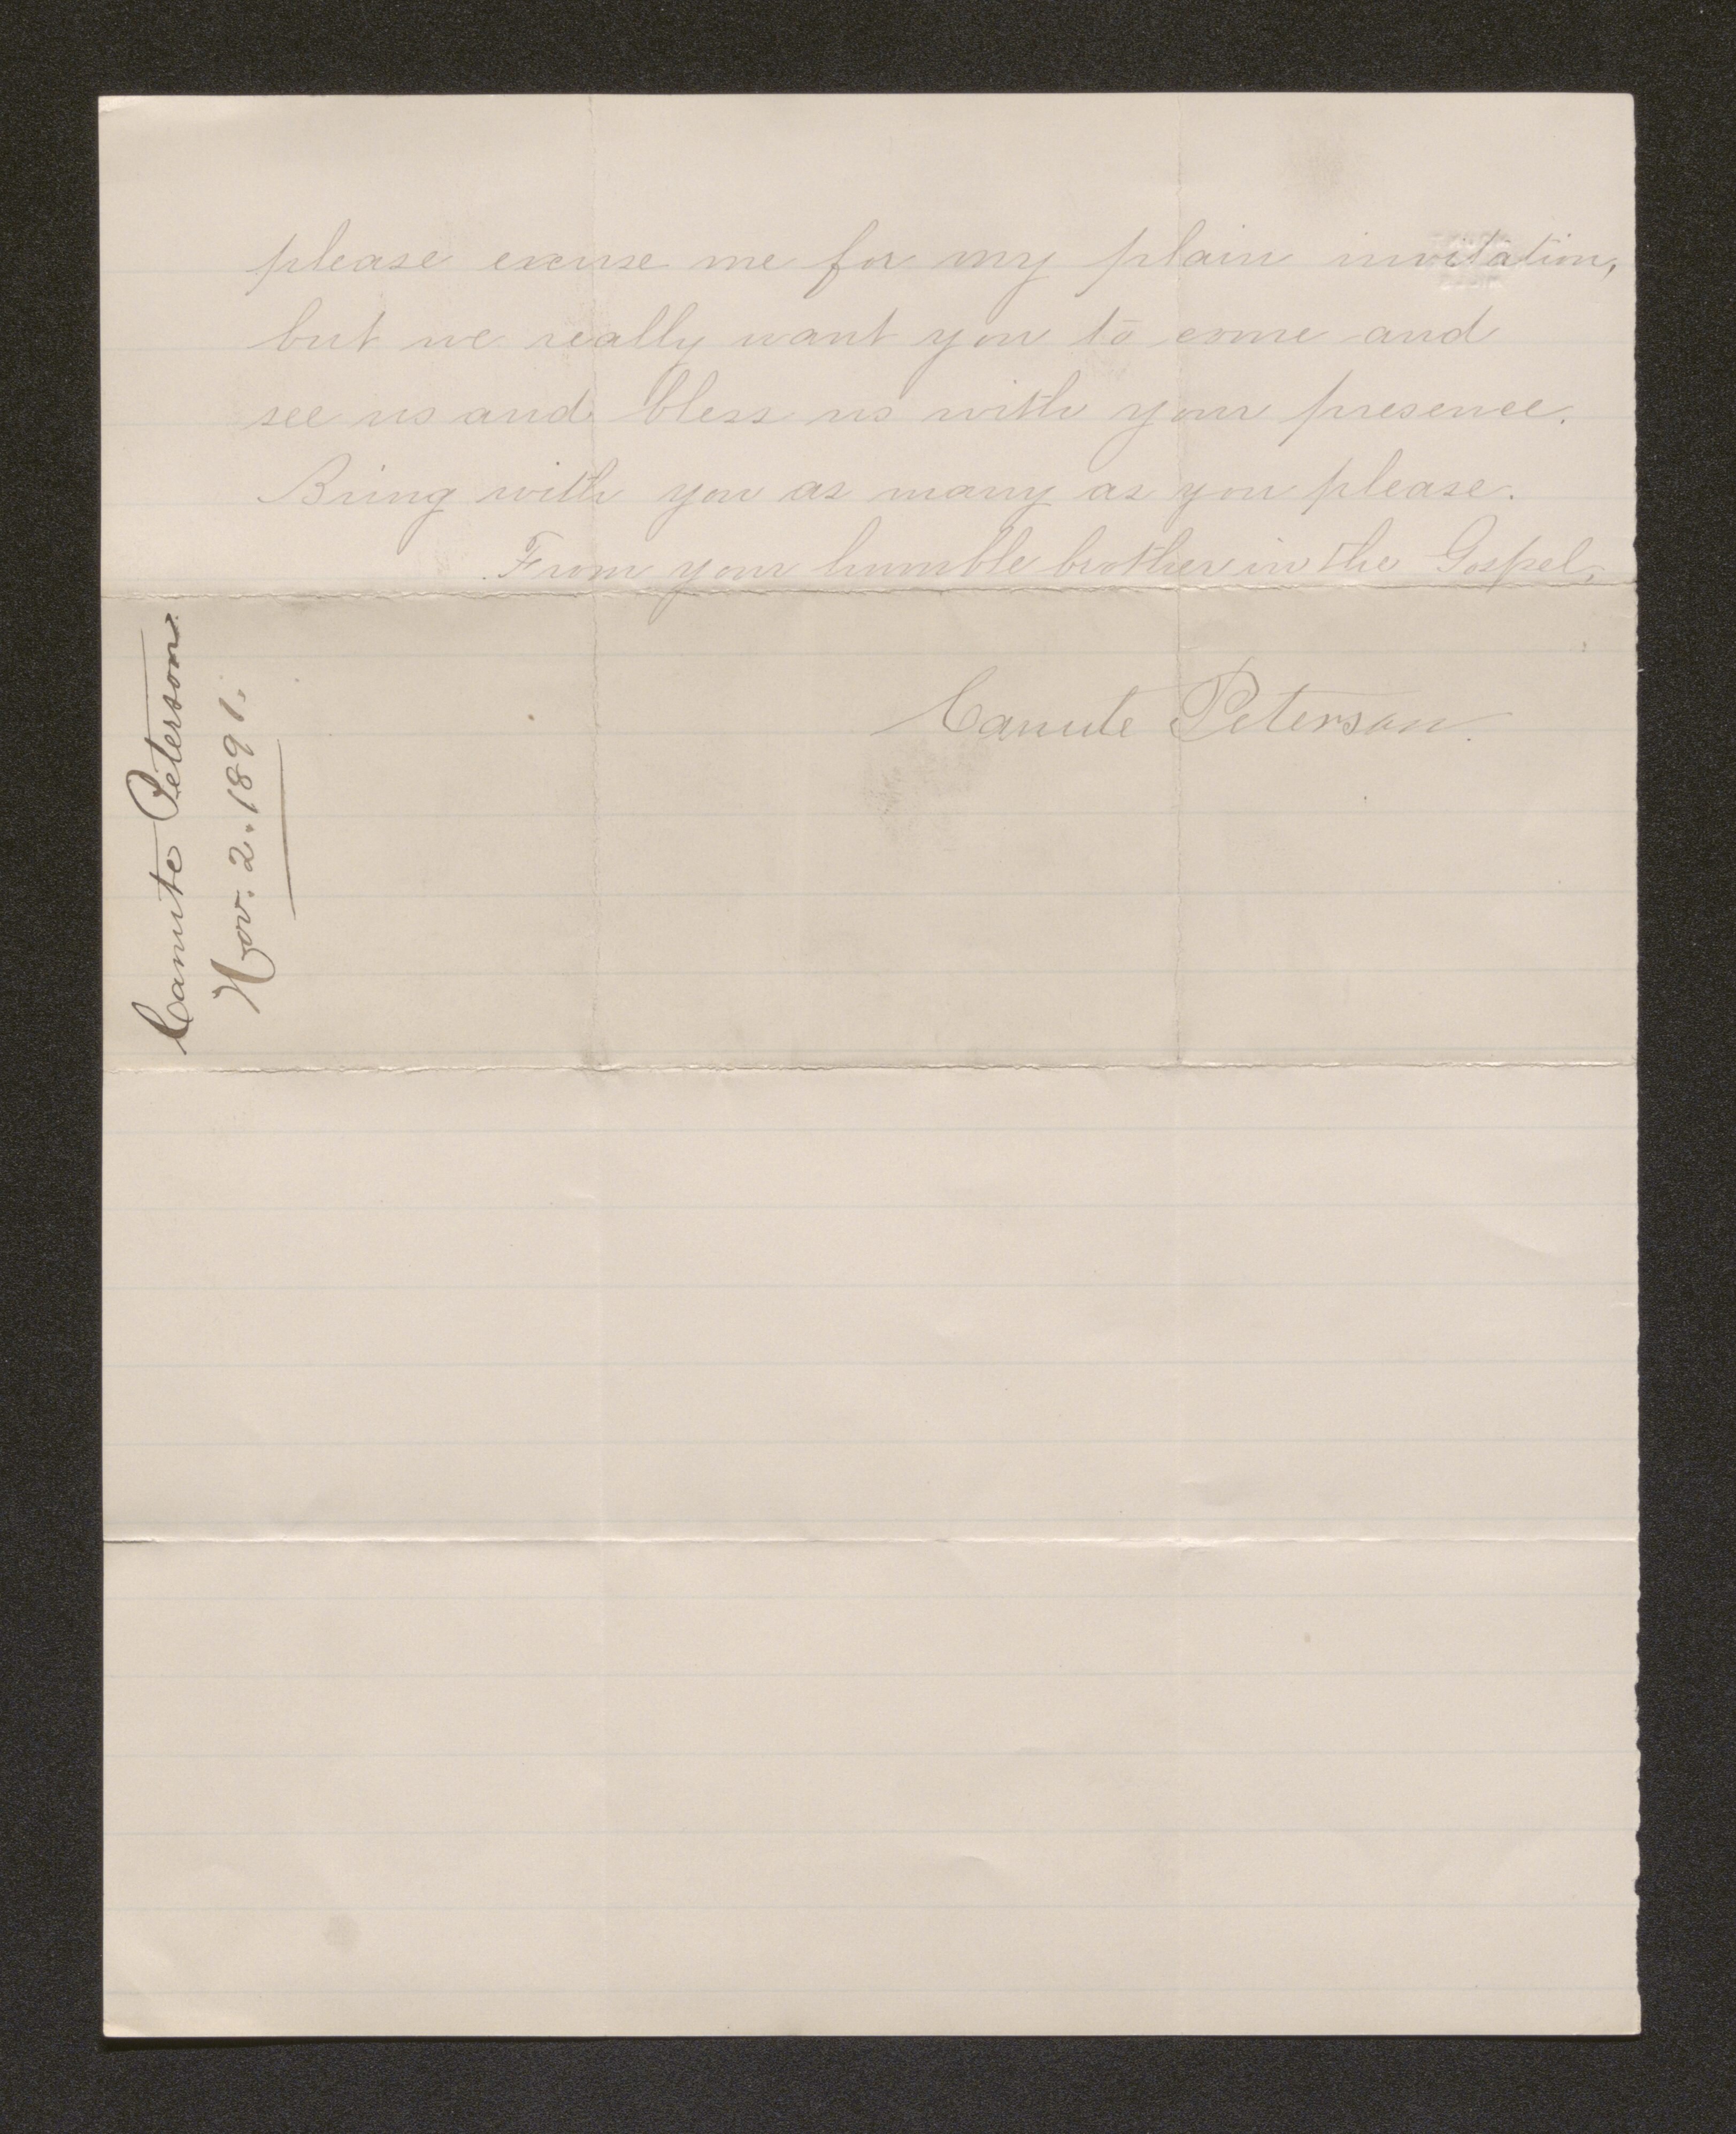 please excuse me for my plain invitation,
but we really want you to come and
see us and bless us with your presence.
Bring with you as many as you please.
From your humble brother in the Gospel,
Canute Peterson.
Canute Peterson.
Nov. 2. 1891.